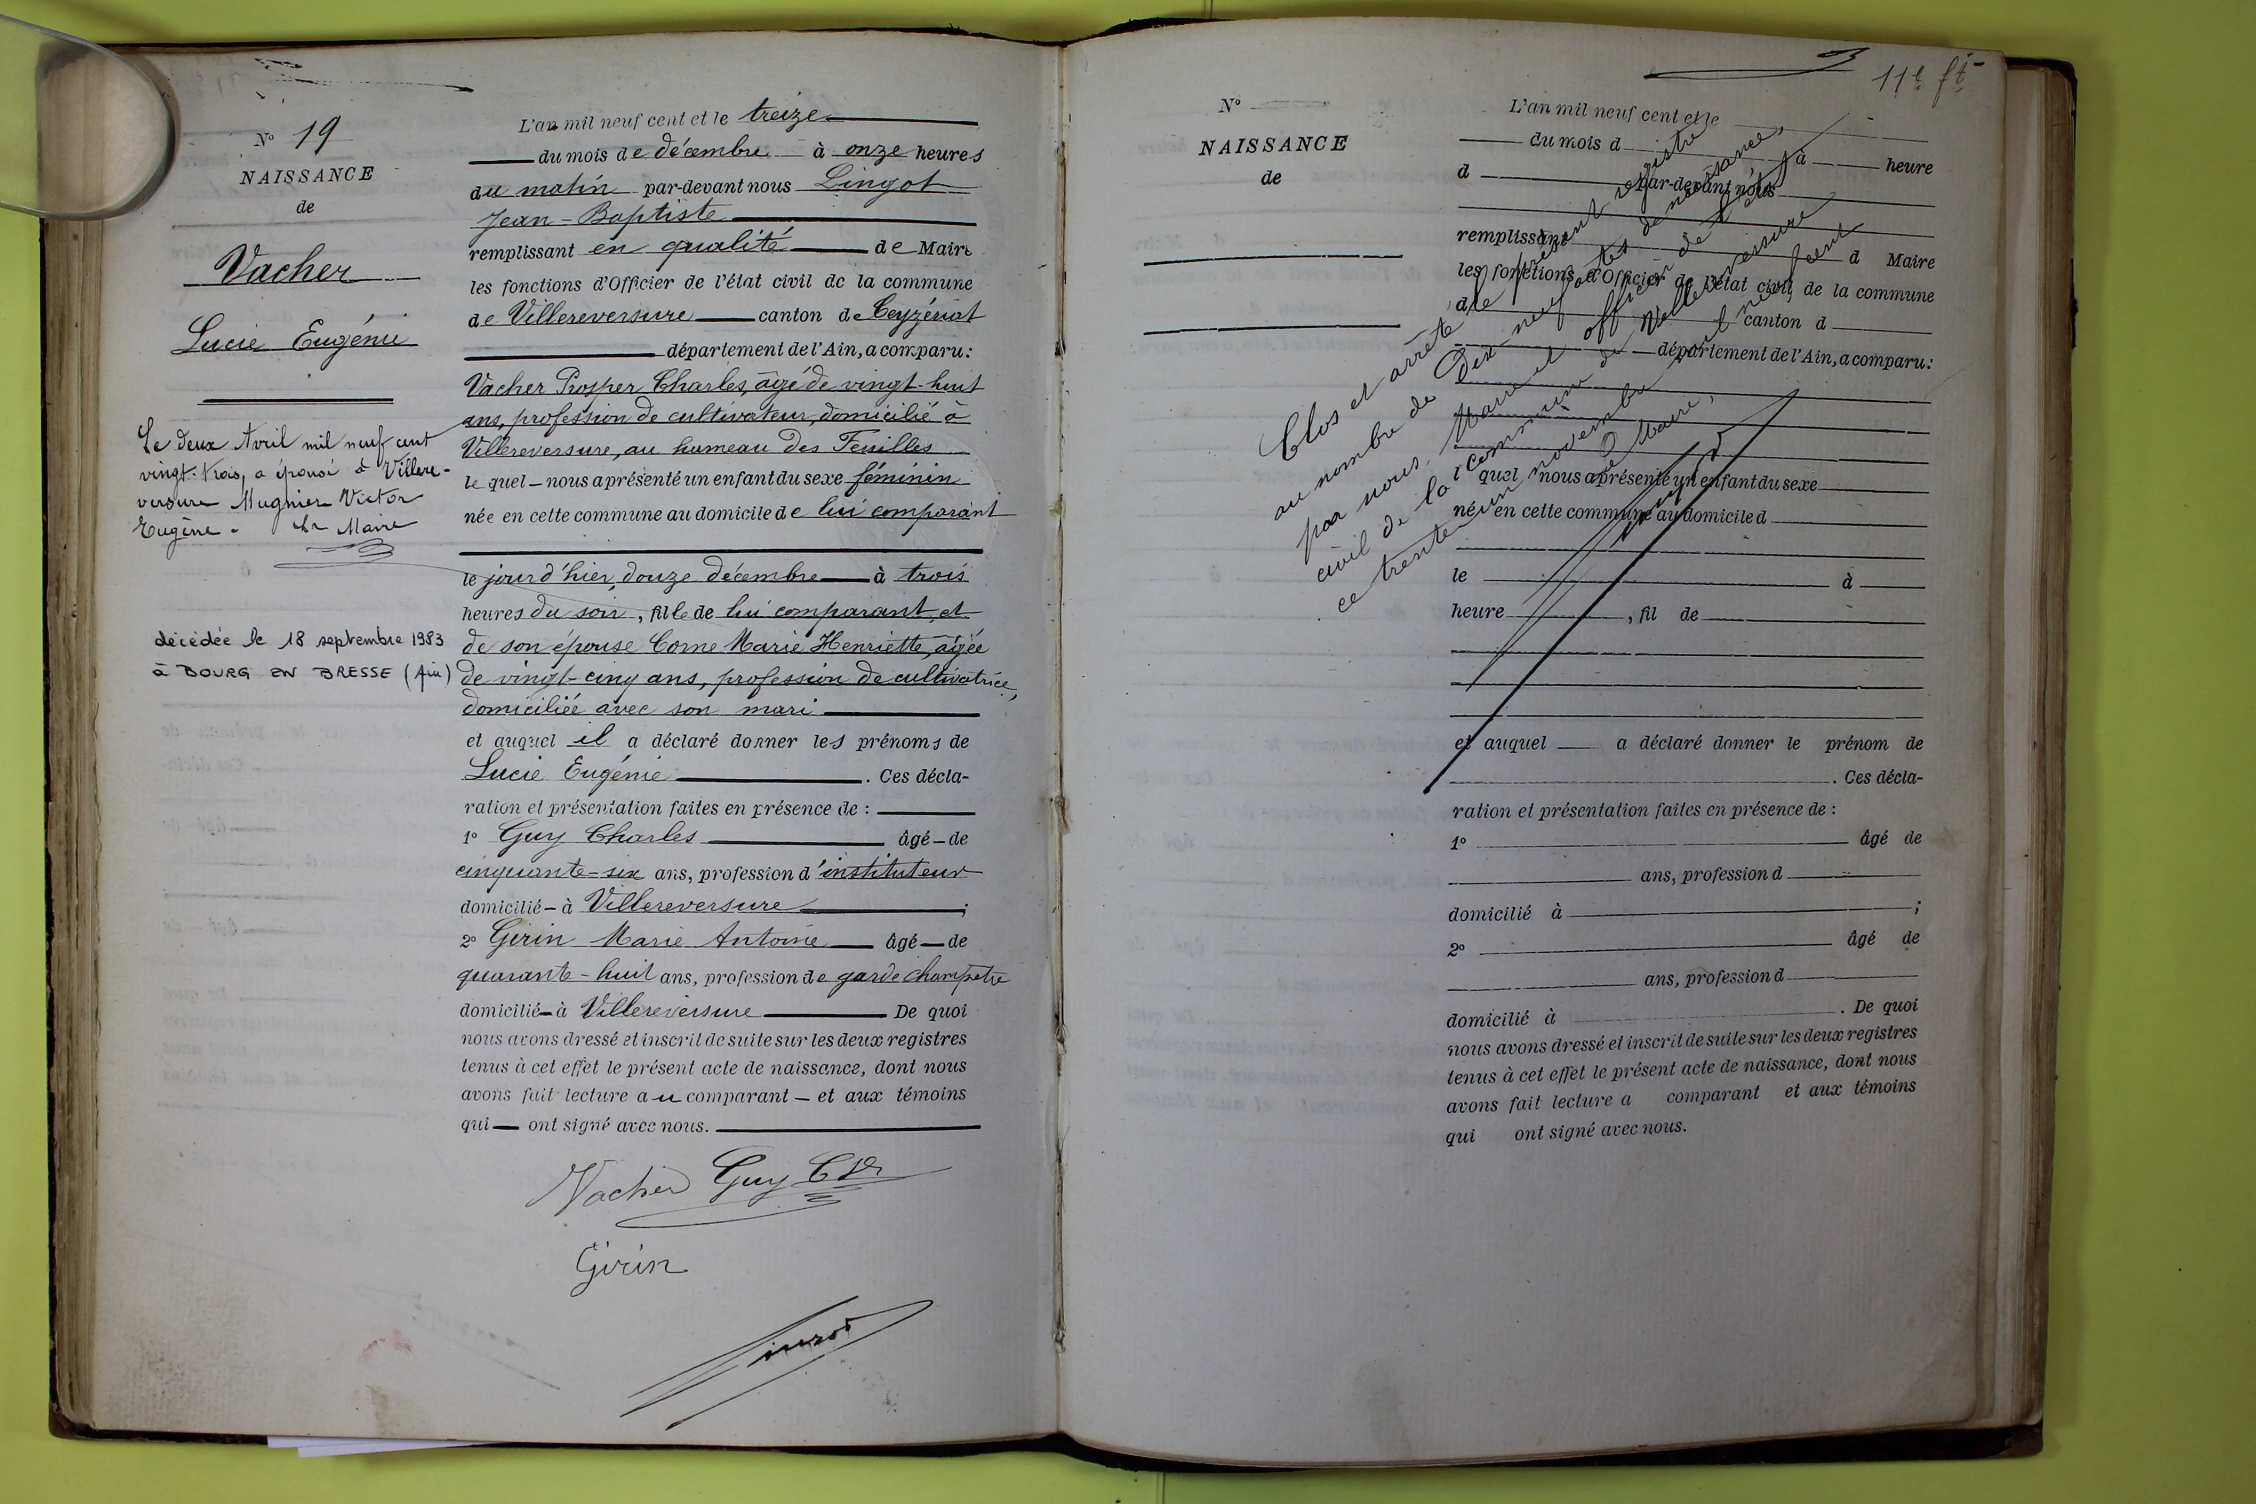 N° 19
NAISSANCE
de
Vacher
Lucie Eugénie
Le deux Avril mil neuf cent
vingt-trois, a épousé à Villere-
versure Mugnier Victor
Eugène. Le Maire
décédée le 18 septembre 1983
à BOURG EN BRESSE (Ain)
L'an mil neuf cent et le treize
du mois de décembre à onze heures
du matin par-devant nous Lingot
Jean-Baptiste
remplissant en qualité de Maire
les fonctions d'Officier de l'état civil de la commune
de Villereversure canton de Ceyzériat
département de l'Ain, a comparu:
Vacher Prosper Charles, âgé de vingt-huit
ans, profession de cultivateur, domicilié à
Villereversure, au hameau des Feuilles
le quel nous a présenté un enfant du sexe féminin
née en cette commune au domicile de lui comparant
le jour d'hier, douze décembre à trois
heures du soir, fille de lui comparant, et
de son épouse Corne Marie Henriette, âgée
de vingt-cinq ans, profession de cultivatrice,
domiciliée avec son mari
et auquel il a déclaré donner les prénoms de
Lucie Eugénie . Ces décla-
ration et présentation faites en présence de :
1° Guy Charles âgé de
cinquante-six ans, profession d'instituteur
domicilié à Villereversure ;
2° Girin Marie Antoine âgé de
quarante-huit ans, profession de garde champêtre
domicilié à Villereversure De quoi
nous avons dressé et inscrit de suite sur les deux registres
tenus à cet effet le présent acte de naissance, dont nous
avons fait lecture au comparant et aux témoins
qui ont signé avec nous.
Vacher Guy Ch
Girin
11e ft
N°
NAISSANCE
de
L'an mil neuf cent et le
du mois d à heure
d par-devant nous
remplissant d Maire
les fonctions d'Officier de l'état civil de la commune
d canton d
département de l'Ain, a comparu:
quel nous a présenté un enfant du sexe
né en cette commune au domicile d
le à
heure , fil de
et auquel a déclaré donner le prénom de
. Ces décla-
ration et présentation faites en présence de :
1° âgé de
ans, profession d
domicilié à ;
2° âgé de
ans, profession d
domicilié à . De quoi
nous avons dressé et inscrit de suite sur les deux registres
tenus à cet effet le présent acte de naissance, dont nous
avons fait lecture a comparant et aux témoins
qui ont signé avec nous.
Clos et arrêté le présent registre
au nombre de Dix-neuf actes de naissance,
par nous, Maire et officier de l'état
civil de la commune de Villereversure
ce trente un novembre mil neuf cent
Le Maire,